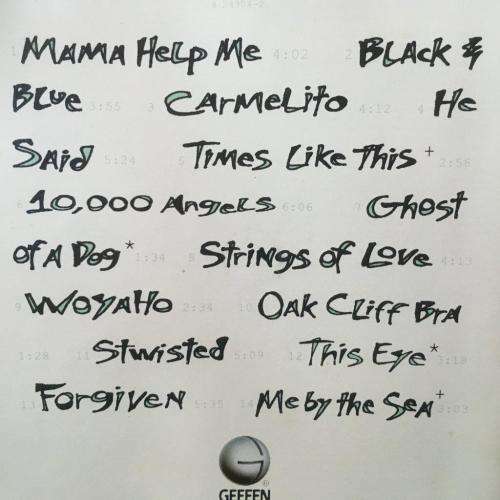 1 Mama Help Me 4:02 2 Black &
Blue 3:55 3 Carmelito 4:12 4 He
Said 5:24 5 Times Like This + 2:58
6 10,000 Angels 6:06 7 Ghost
of A Dog * 1:34 8 Strings of Love 4:13
9 Woyaho 2:34 10 Oak Cliff Bra
1:28 11 Stwisted 5:09 12 This Eye * 3:18
13 Forgiven 5:35 14 Me by the Sea + 3:03
GEFFEN